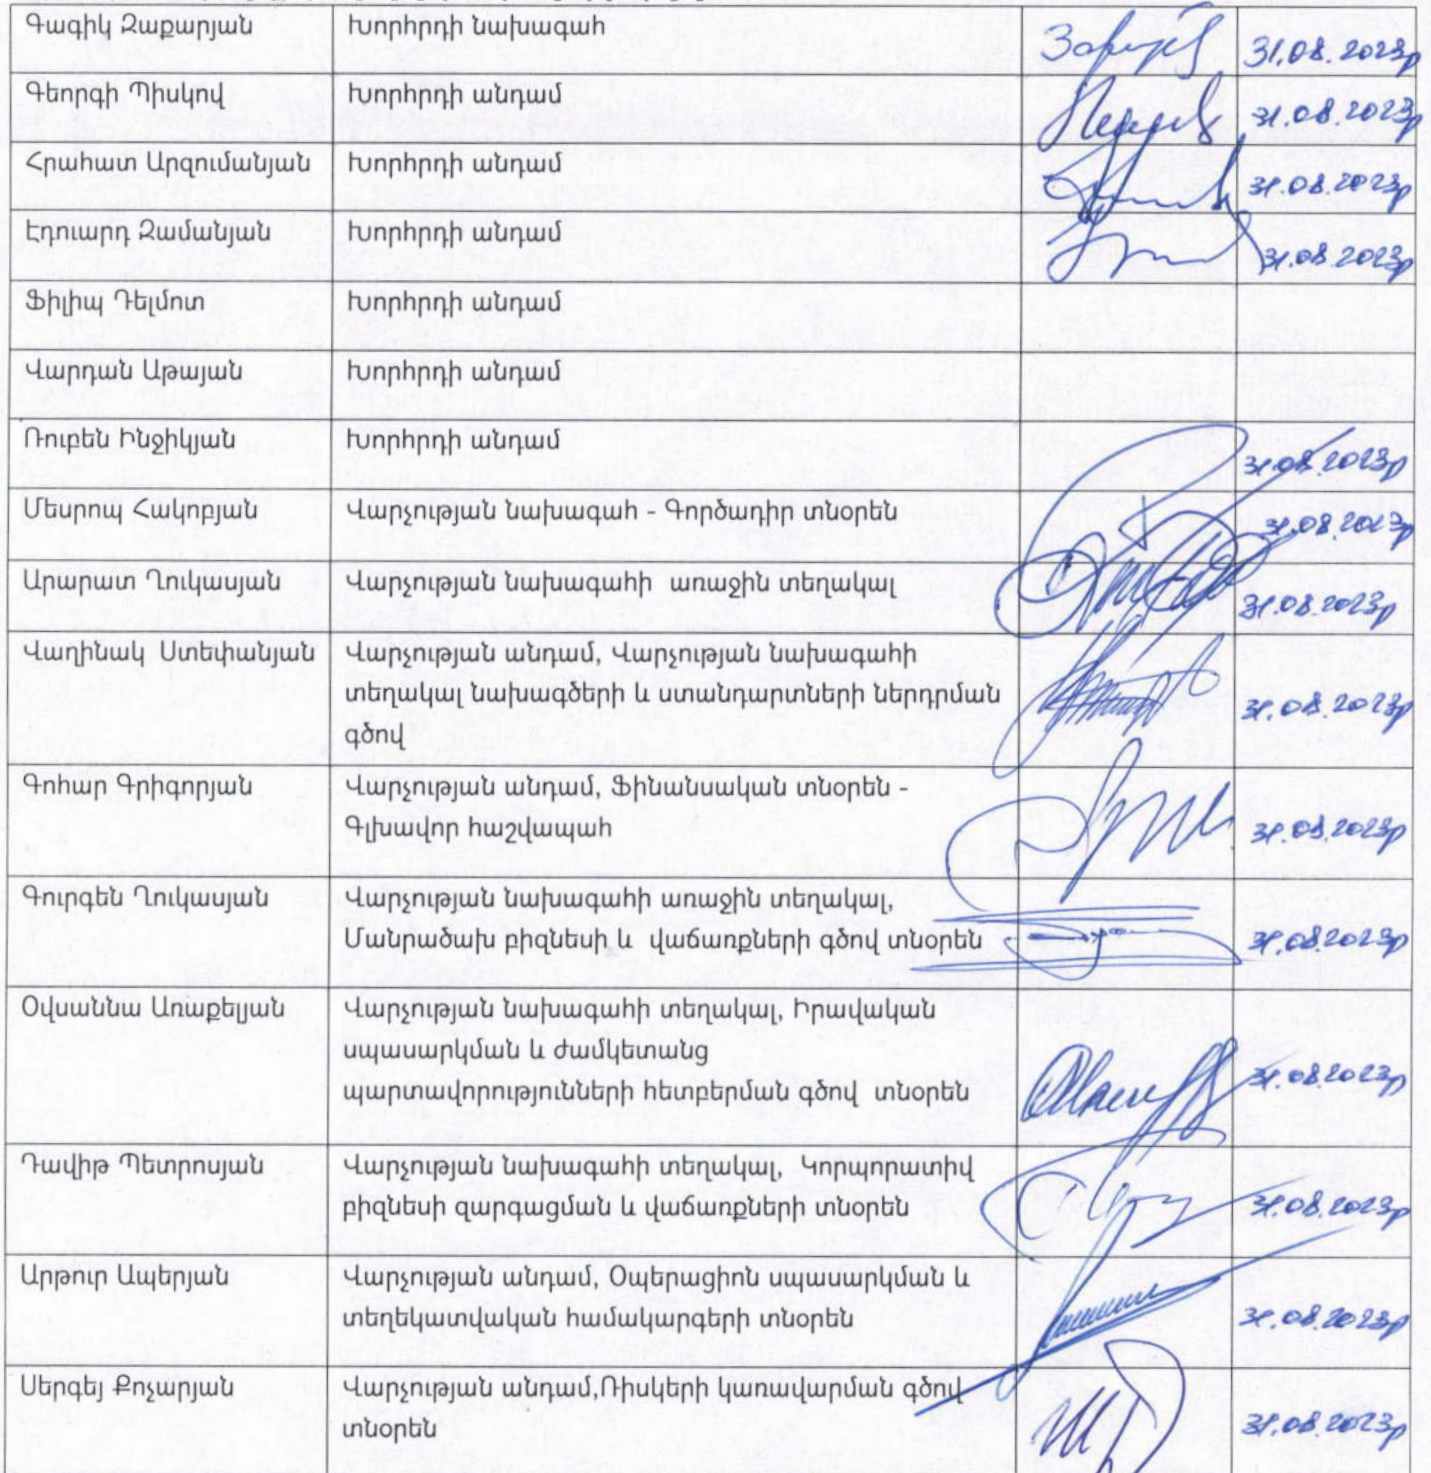 Գագիկ Զաքարյան Խորհրդի նախագահ 31.08.2023թ
Գեորգի Պիսկով Խորհրդի անդամ 31.08.2023թ
Հրահատ Արզումանյան Խորհրդի անդամ 31.08.2023թ
Էդուարդ Զամանյան Խորհրդի անդամ 31.08.2023թ
Ֆիլիպ Դելմոտ Խորհրդի անդամ
Վարդան Աթայան Խորհրդի անդամ
Ռուբեն Ինջիկյան Խորհրդի անդամ 31.08.2023թ
Մեսրոպ Հակոբյան Վարչության նախագահ - Գործադիր տնօրեն 31.08.2023թ
Արարատ Ղուկասյան Վարչության նախագահի առաջին տեղակալ 31.08.2023թ
Վաղինակ Ստեփանյան Վարչության անդամ, Վարչության նախագահի
տեղակալ նախագծերի և ստանդարտների ներդրման 31.08.2023թ
գծով
Գոհար Գրիգորյան Վարչության անդամ, Ֆինանսական տնօրեն -
Գլխավոր հաշվապահ 31.08.2023թ
Գուրգեն Ղուկասյան Վարչության նախագահի առաջին տեղակալ,
Մանրածախ բիզնեսի և վաճառքների գծով տնօրեն 31.08.2023թ
Օվսաննա Առաքելյան Վարչության նախագահի տեղակալ, Իրավական
սպասարկման և ժամկետանց
պարտավորությունների հետբերման գծով տնօրեն 31.08.2023թ
Դավիթ Պետրոսյան Վարչության նախագահի տեղակալ, Կորպորատիվ
բիզնեսի զարգացման և վաճառքների տնօրեն 31.08.2023թ
Արթուր Ապերյան Վարչության անդամ, Օպերացիոն սպասարկման և
տեղեկատվական համակարգերի տնօրեն 31.08.2023թ
Սերգեյ Քոչարյան Վարչության անդամ,Ռիսկերի կառավարման գծով
տնօրեն 31.08.2023թ